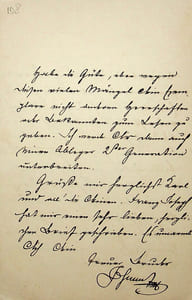 158
Habe die Güte, aber wegen
dieser vielen Mängel dies Exem-
plare nicht anderen Herrschaften
als Bekannten zum Lesen zu
geben. Ich werde Dir dann auch
meinen Ableger 2ter Generation
unterbreiten.
Grüße mir herzlichst Karl
und all die Deinen. Franz Joseph
hat mir einen sehr lieben herzli-
chen Brief geschrieben. Es umarmt
Dich Dein
treuer Bruder